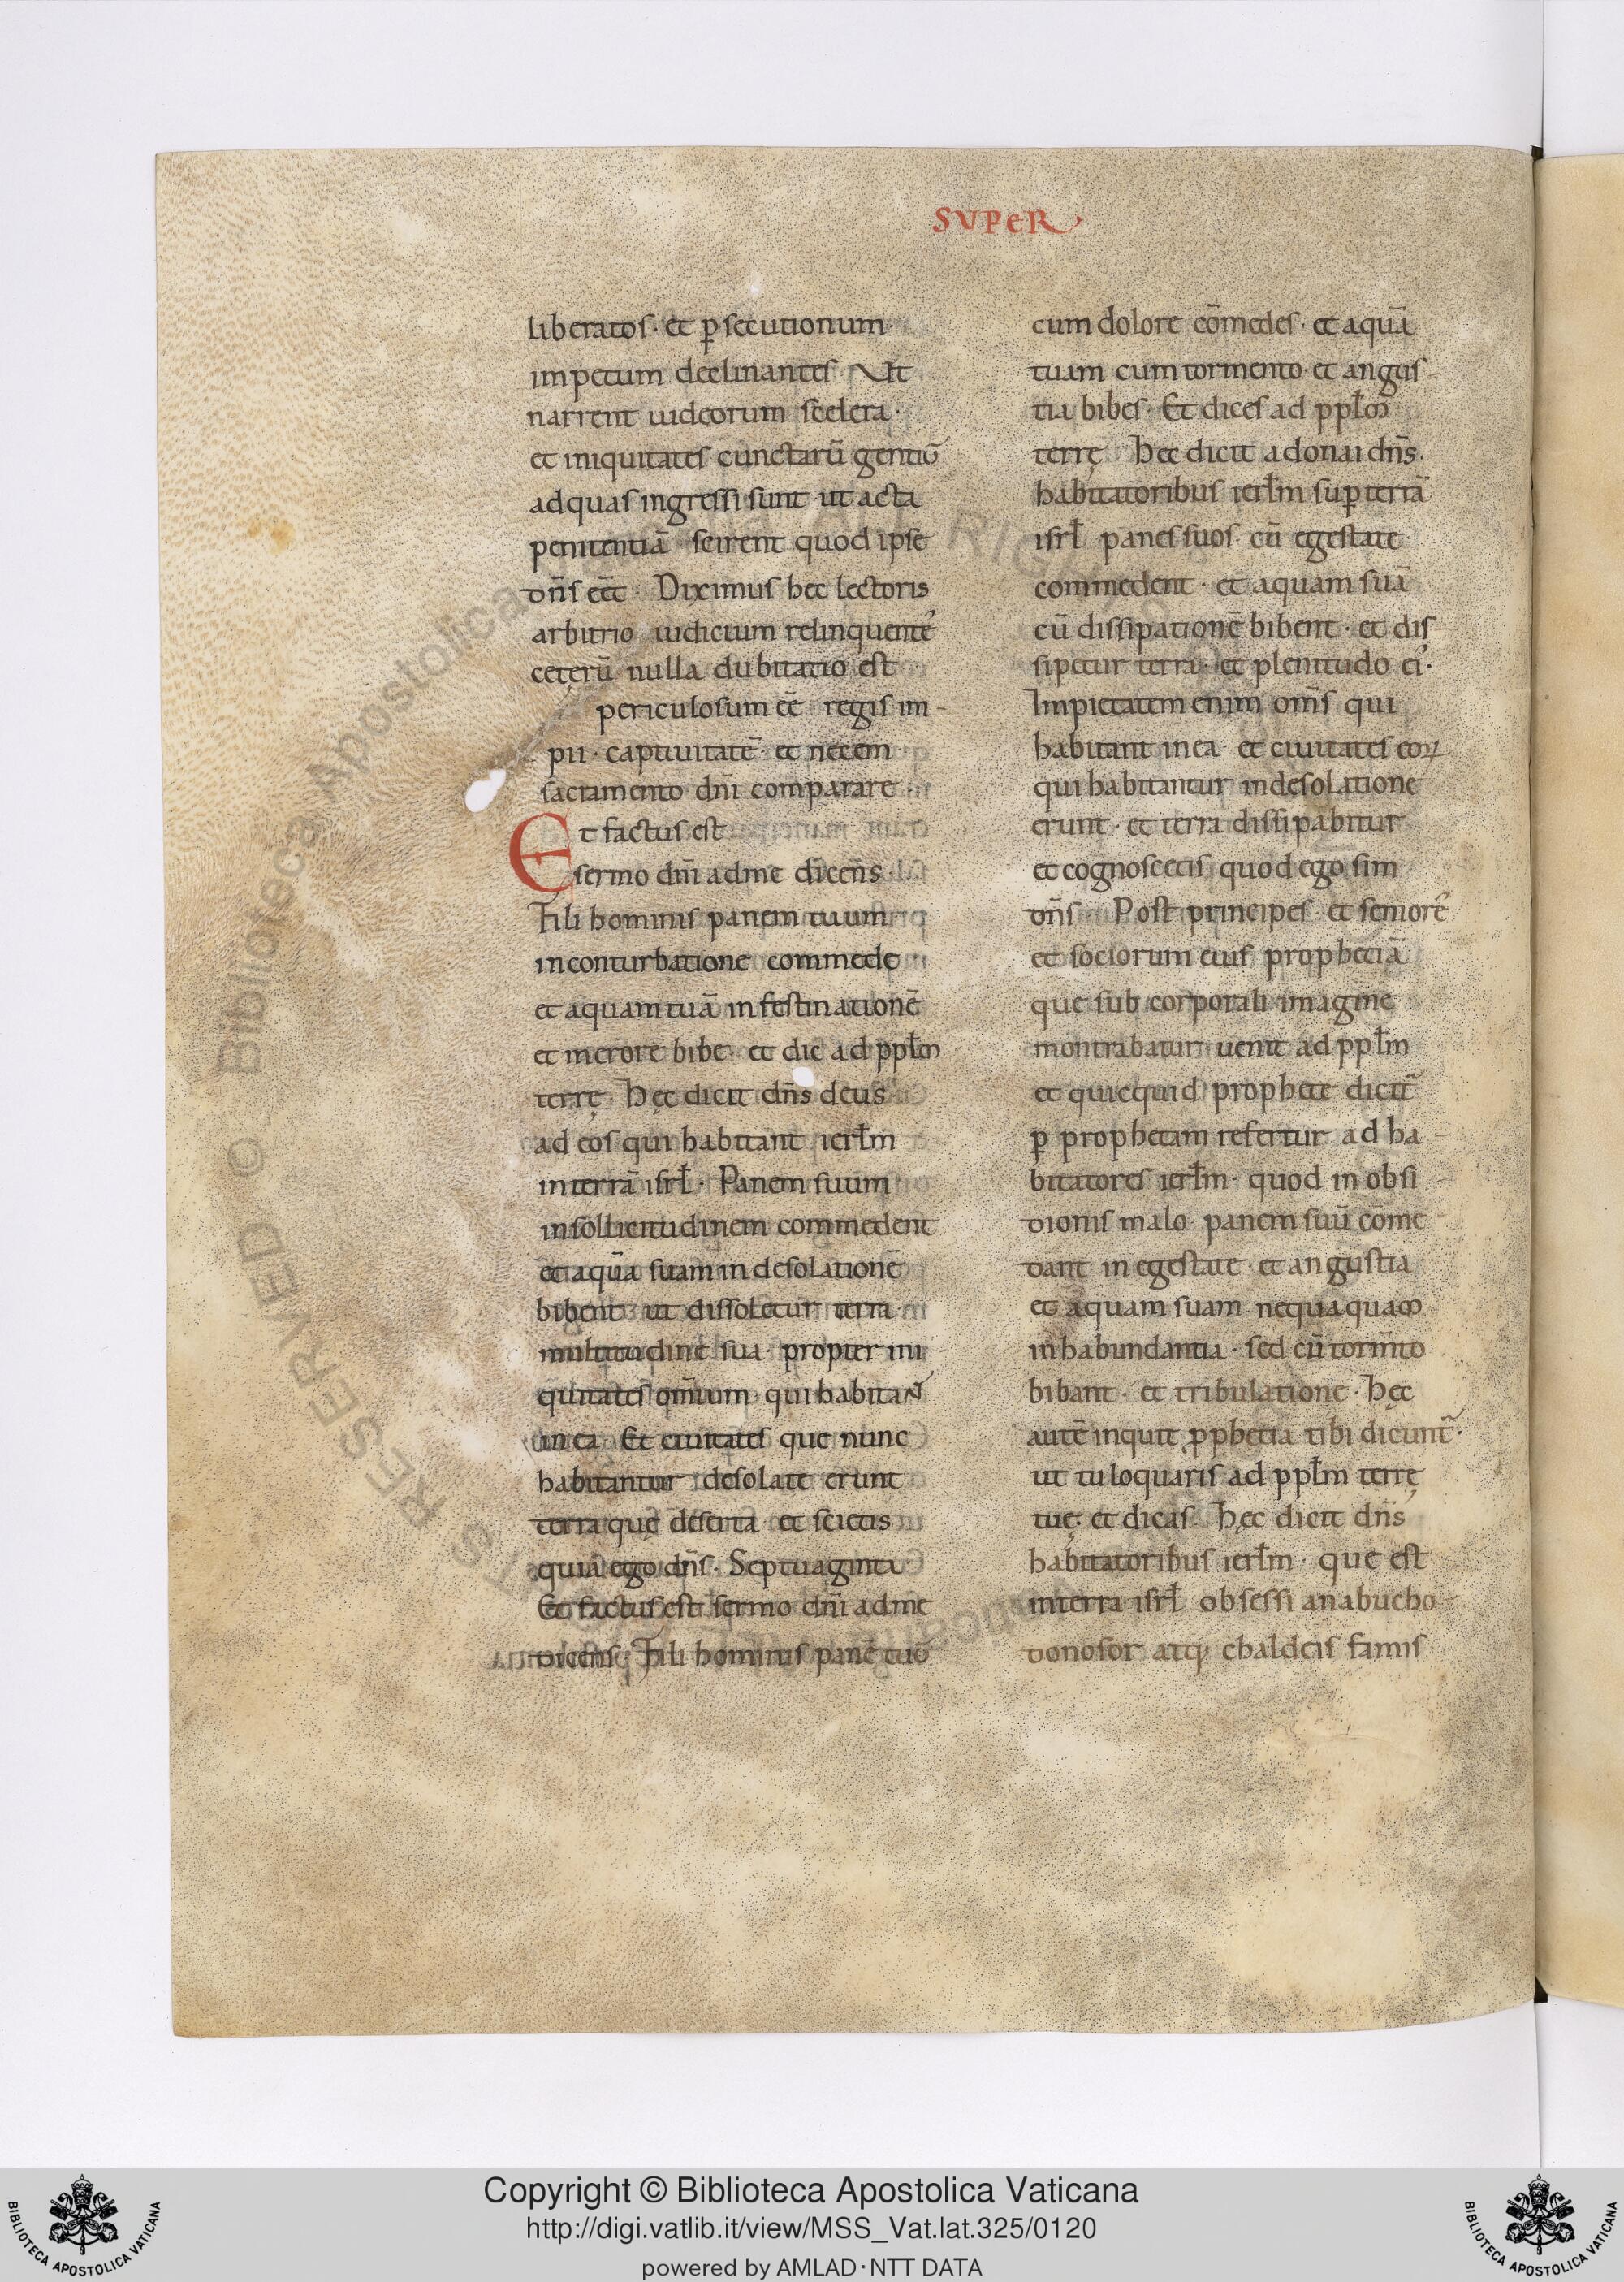 SVPER
liberatos· et p̱secutionum·
impetum declinantes Ut
narrent iudeorum scelera·
et iniquitates cunctarū gentiū
ad quas ingressi sunt· ut acta
penitentiā scirent quod ipse
dn̄s eēt· Diximus hec lectoris
arbitrio iudicium relinquente᷒
ceterū nulla dubitatio est
periculosum eē· regis im-
pii· captiuitatē· et necem
sacramento dn̄i comparare·
Et factus est
sermo dn̄i ad me dicens·
Fili hominis panem tuum
in conturbatione commede
et aquam tuā in festinationē
et merore bibe· et dic ad ppłm
terrę· Hęc dicit dn̄s deus
ad eos qui habitant ierłm
in terrā isrł· Panem suum
in sollicitudinem commedent
et aquā suam in desolationē
bibent· ut dissoletur terra·
multitudine sua· propter ini
quitates om̄ium· qui habitant
in ea· Et ciuitates que nunc
habitantur desolate erunt
terra quę deserta· et scietis
quia ego dn̄s· Septuaginta·
Et factus est sermo dn̄i ad me
dicens· Fili hominis panē tuū
cum dolore cōmedes· et aquā
tuam cum tormento· et angus-
tia bibes· Et dices ad ppłm
terrę Hec dicit adonai dn̄s·
habitatoribus ierłm sup̱ terrā
isrł panes suos· cū egestate
commedent· et aquam suā
cū dissipationē bibent· et dis
sipetur terra· et plenitudo ei᷒·
Impietatem enim om̄s qui
habitant in ea· et ciuitates eoꝝ
qui habitantur in desolatione
erunt· et terra dissipabitur
et cognoscetis quod ego sim
dn̄s Post principes· et seniore᷒
et sociorum eius prophetiā
que sub corporali imagine
montrabatur uenit ad ppłm
et quicquid prophete dicit᷑
p̱ prophetam refertur ad ha-
bitatores ierłm· quod in obsi-
dionis malo· panem suū cōme-
dant in egestate· et angustia
et aquam suam nequaquam
in habundantia· sed cū torm̄to
bibant· et tribulatione· Hęc
autē inquit ꝓphetia tibi dicunt᷑·
ut tu loquaris ad ppłm terrę
tuę· et dicas· Hęc dicit dn̄s
habitatoribus ierłm· que est
in terra isrł obsessi a nabucho
donosor atq; chaldeis famis
Copyright © Biblioteca Apostolica Vaticana
http://digi.vatlib.it/view/MSS_Vat.lat.325/0120
powered by AMLAD·NTT DATA